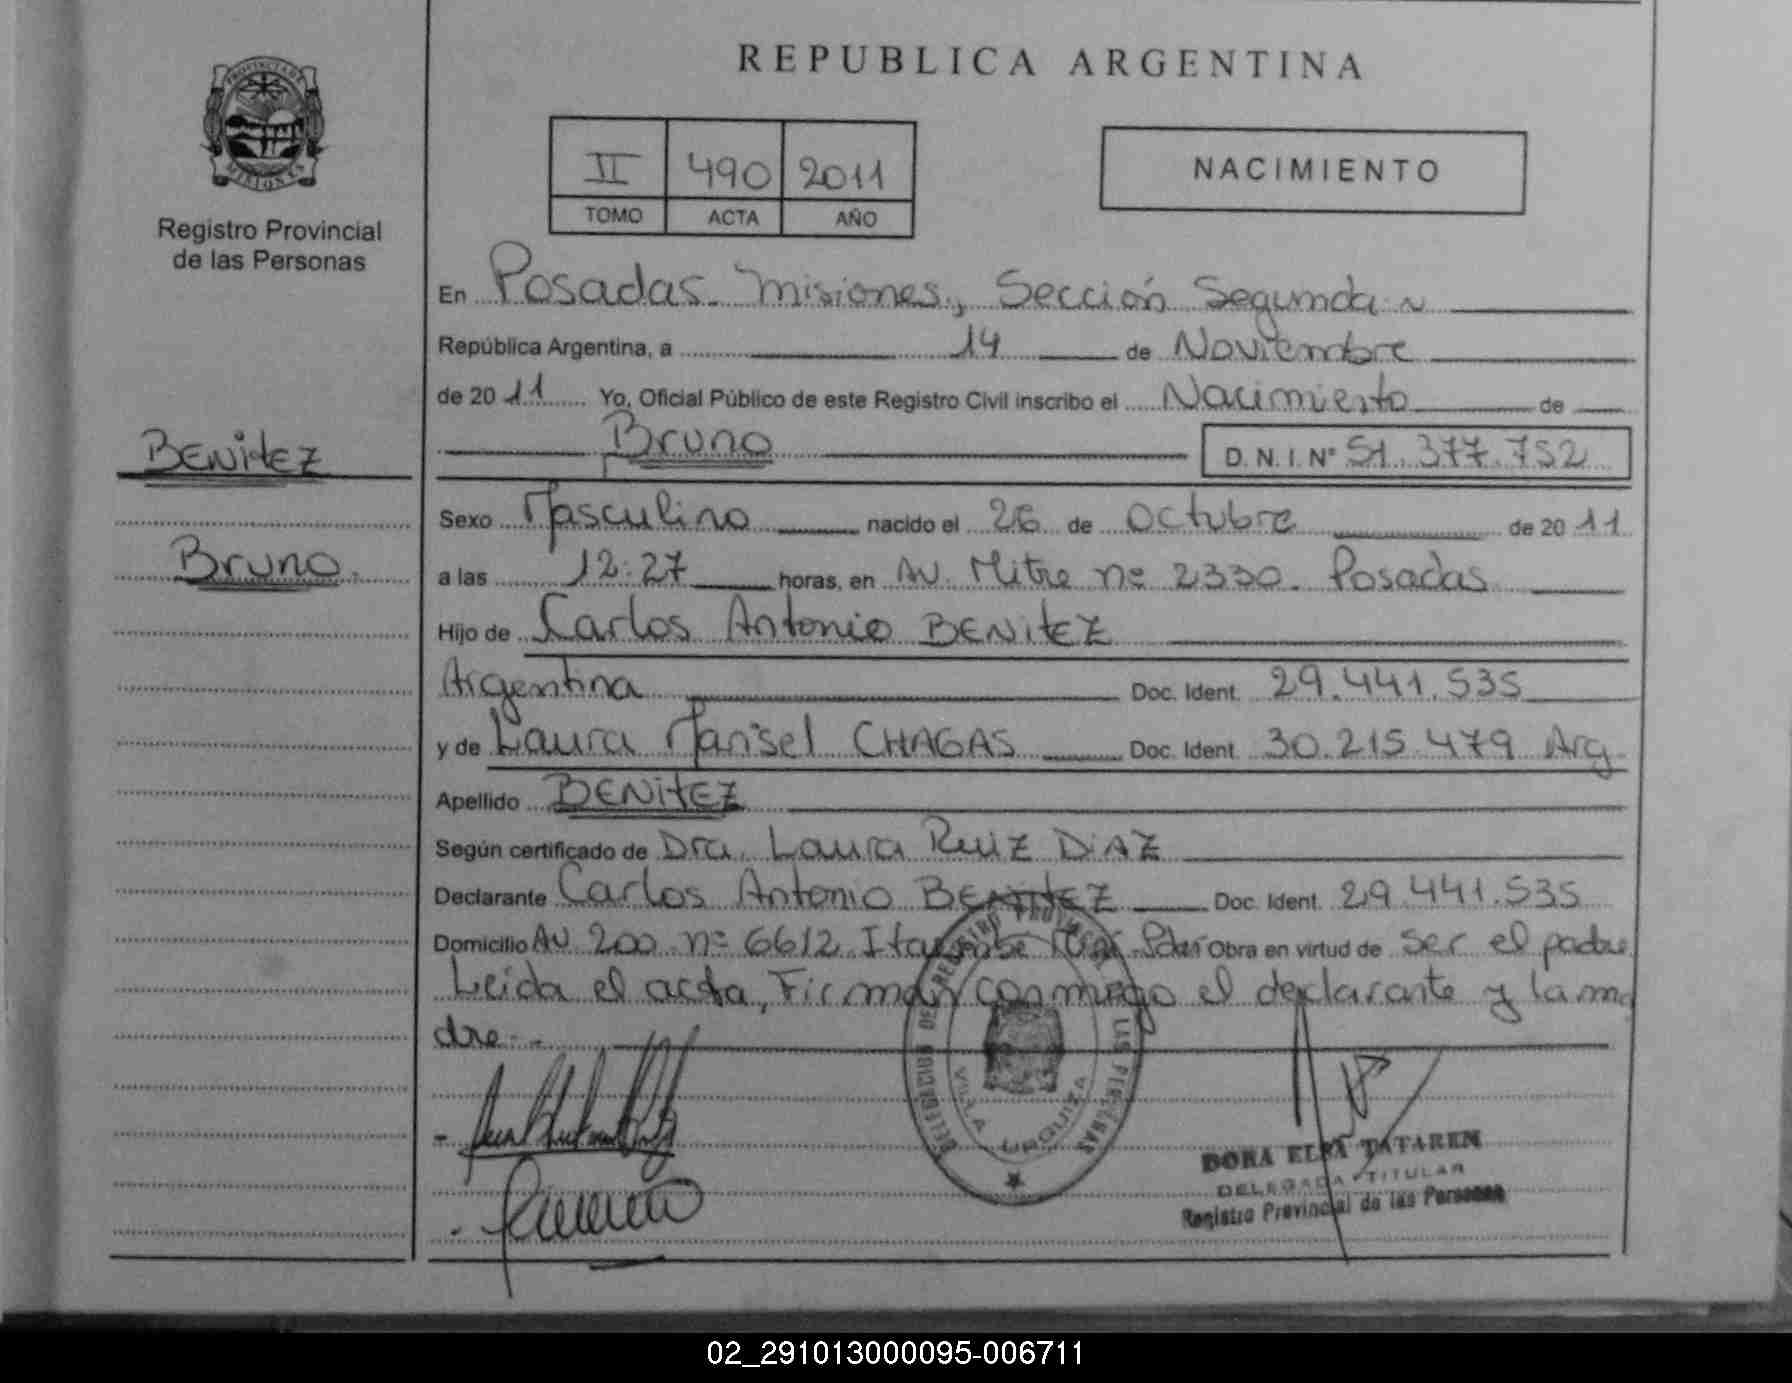 REPUBLICA ARGENTINA
PROVINCIA DE
MISIONES
Registro Provincial
de las Personas
II 490 2011
TOMO ACTA AÑO
NACIMIENTO
En Posadas. Misiones, Sección Segunda ~
República Argentina, a 14 de Noviembre
de 2011 Yo, Oficial Público de este Registro Civil inscribo el Nacimiento de
Bruno D. N. I. Nº 51.377.752
BENitEZ
Sexo Masculino nacido el 26 de Octubre de 2011
Bruno.
a las 12:27 horas, en AV. Mitre nº 2330. Posadas
Hijo de Carlos Antonio BENitEZ
Argentina Doc. Ident. 29.441.535
y de Laura Marisel CHAGAS Doc. Ident. 30.215.479 Arg.
Apellido BENitEZ
Según certificado de Dra. Laura Ruiz DiAZ
Declarante Carlos Antonio BENitEZ Doc. Ident. 29.441.535
Domicilio AV. 200 nº 6612 Itaembe Obra en virtud de ser el padre
Leida el acta, Firman conmigo el declarante y la ma
dre.-
DELEGACION DEL REGISTRO PROVINCIAL DE LAS PERSONAS
VILLA URQUIZA
DORA ELSA TATAREN
DELEGADA TITULAR
Registro Provincial de las Personas
02_291013000095-006711